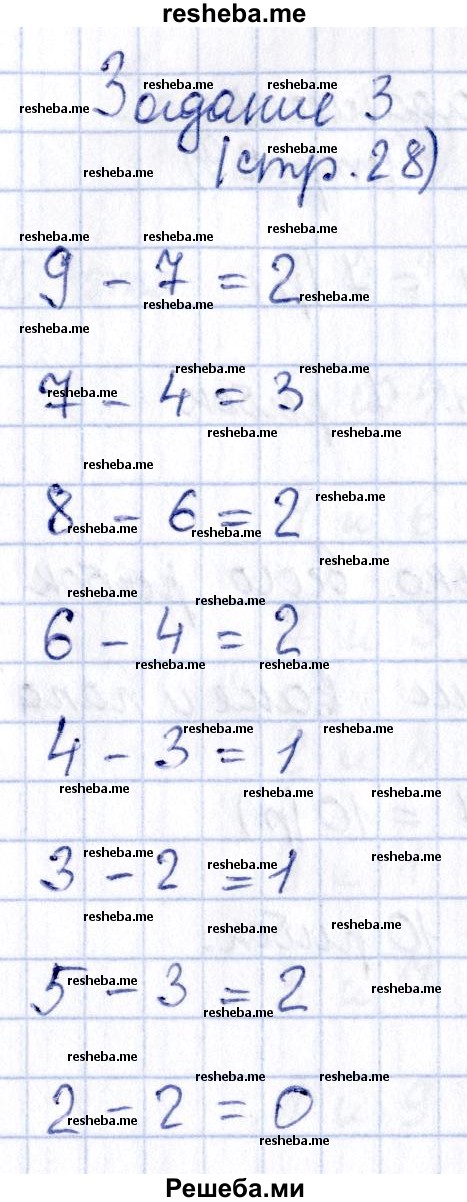 resheba.me
Задание 3
(стр. 28)
9 - 7 = 2
7 - 4 = 3
8 - 6 = 2
6 - 4 = 2
4 - 3 = 1
3 - 2 = 1
5 - 3 = 2
2 - 2 = 0
Решеба.ми